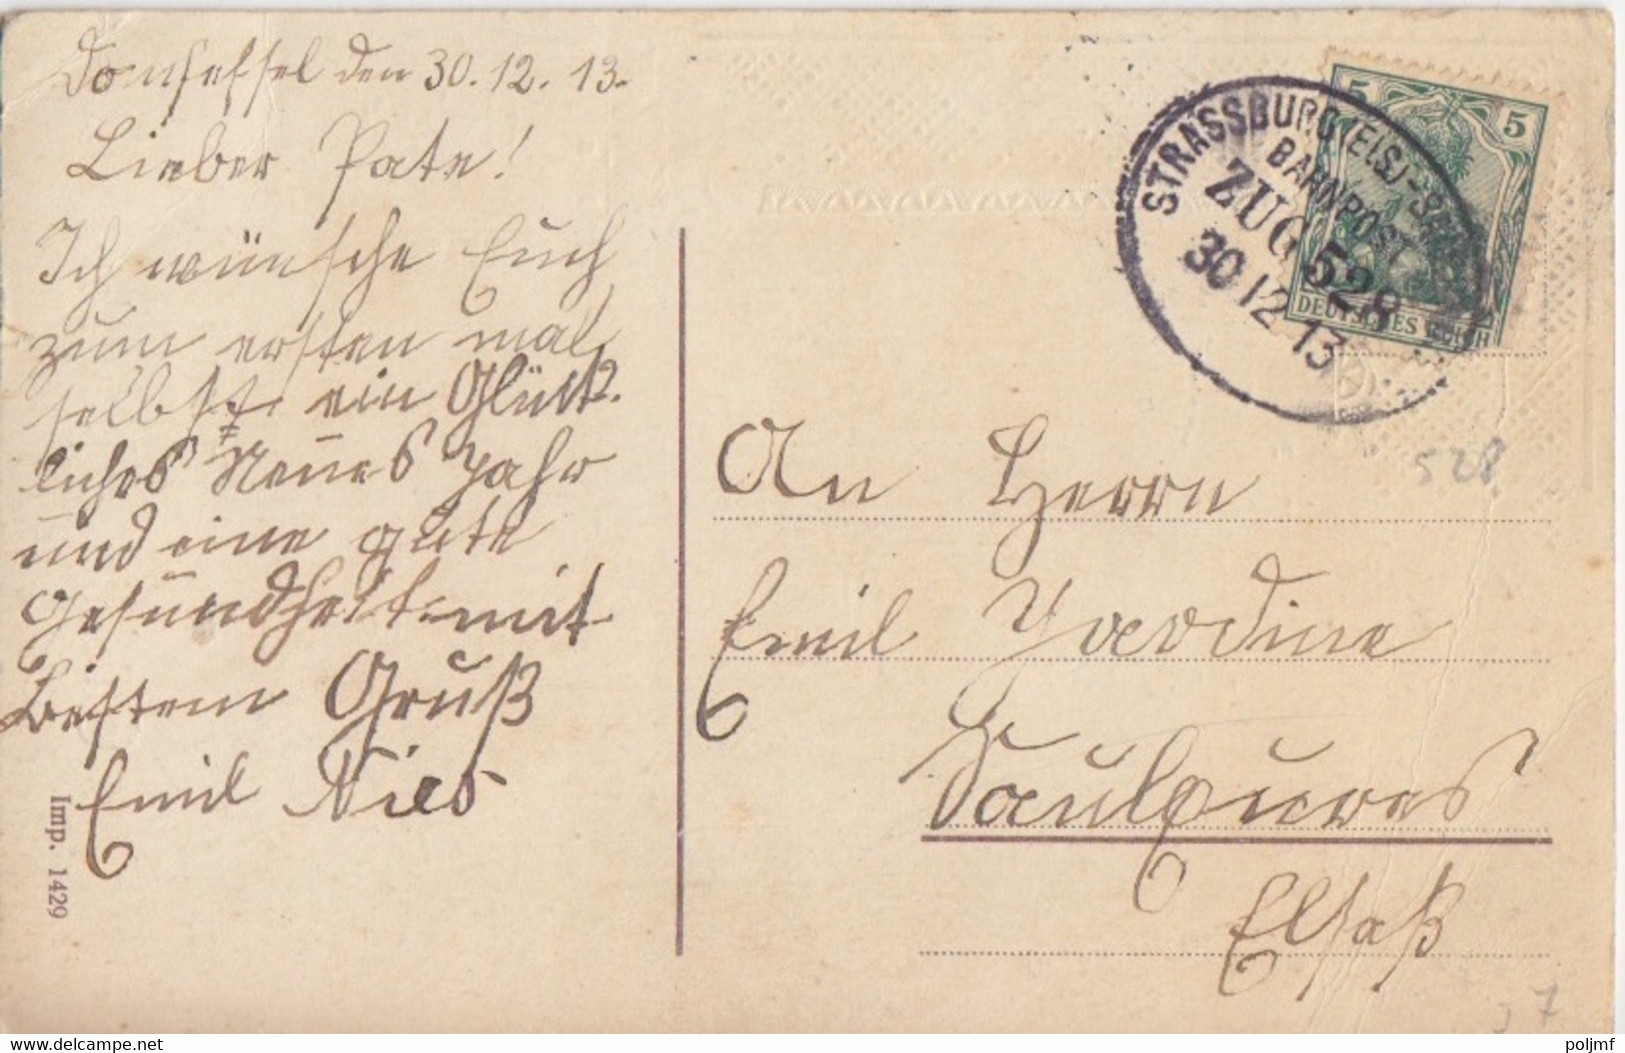 Domfessel den 30.12.13.
Lieber Pate!
Ich wünsche Euch
zum ersten mal
selbst ein Glück-
liches Neues Jahr
und eine gute
Gesundheit mit
bestem Gruß
Emil Nies
Imp. 1429
STRASSBURG (ELS)-
BAHNPOST
ZUG 528
30 12 13
5 5
DEUTSCHES REICH
528
An Herrn
Emil
Saulxures
Elsaß
37
www.delcampe.net
poljmf